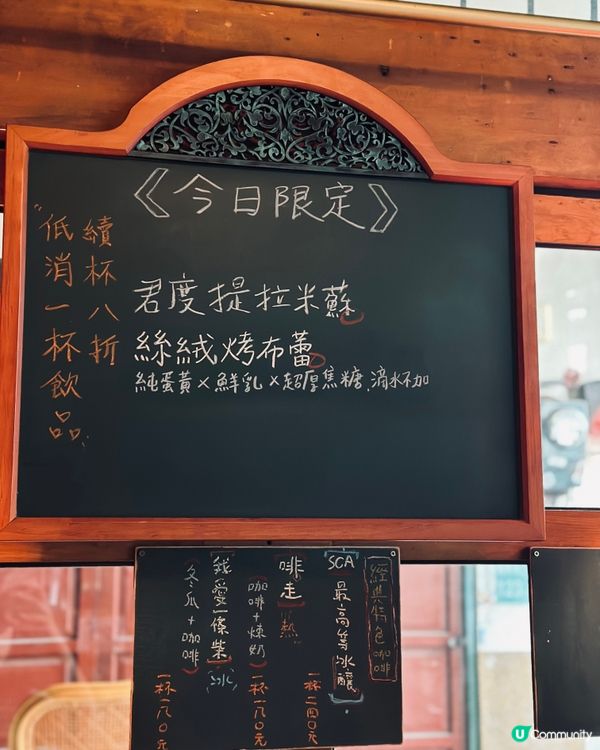 《今日限定》
君度提拉米蘇
絲絨烤布蕾
純蛋黃×鮮乳×超厚焦糖、滴水不加
續杯八折
"低消一杯飲品"
經典特色咖啡
SCA最高等冰釀
一杯二四〇元
啡走(熱)
咖啡+煉奶
一杯一八〇元
我愛一條柴(冰)
冬瓜+咖啡
一杯一八〇元
U Community